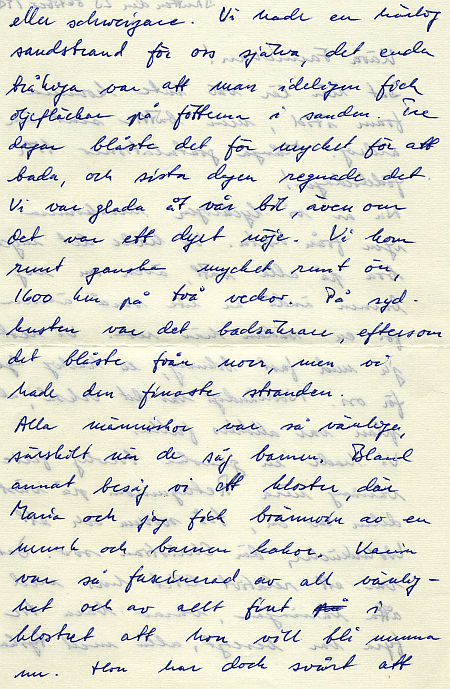 eller schweizare. Vi hade en härlig
sandstrand för oss själva, det enda
tråkiga var att man ideligen fick
oljefläckar på fötterna i sanden. Tre
dagar blåste det för mycket för att
bada, och sista dagen regnade det.
Vi var glada åt vår bil, även om
det var ett dyrt nöje. Vi kom
runt ganska mycket runt ön,
1600 km på två veckor. På syd-
kusten var det badsäkrare, eftersom
det blåste från norr, men vi
hade den finaste stranden.
Alla människor var så vänliga,
särskilt när de såg barnen. Bland
annat besåg vi ett kloster, där
Maria och jag fick brännvin av en
munk och barnen kakor. Karin
var så fascinerad av all vänlig-
het och av allt fint i
klostret att hon vill bli nunna
nu. Hon har dock svårt att